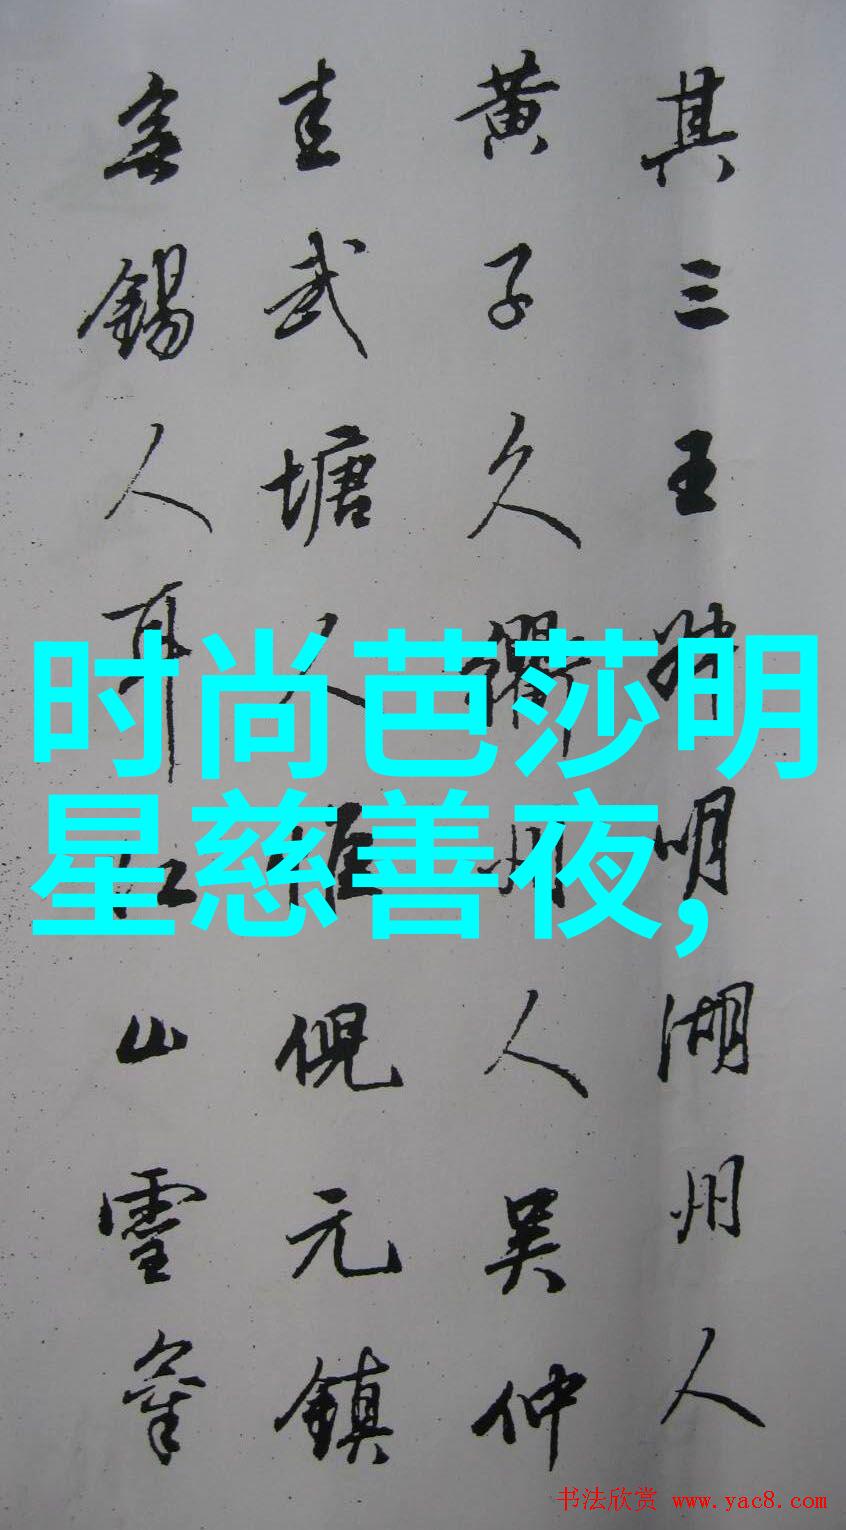 其三王叔明湖州人
黄子久衢州人吴仲
圭武塘人惟倪元鎮
無錫人耳江山霊氣
时尚芭莎明
星慈善夜,
书法欣赏 www.yac8.com